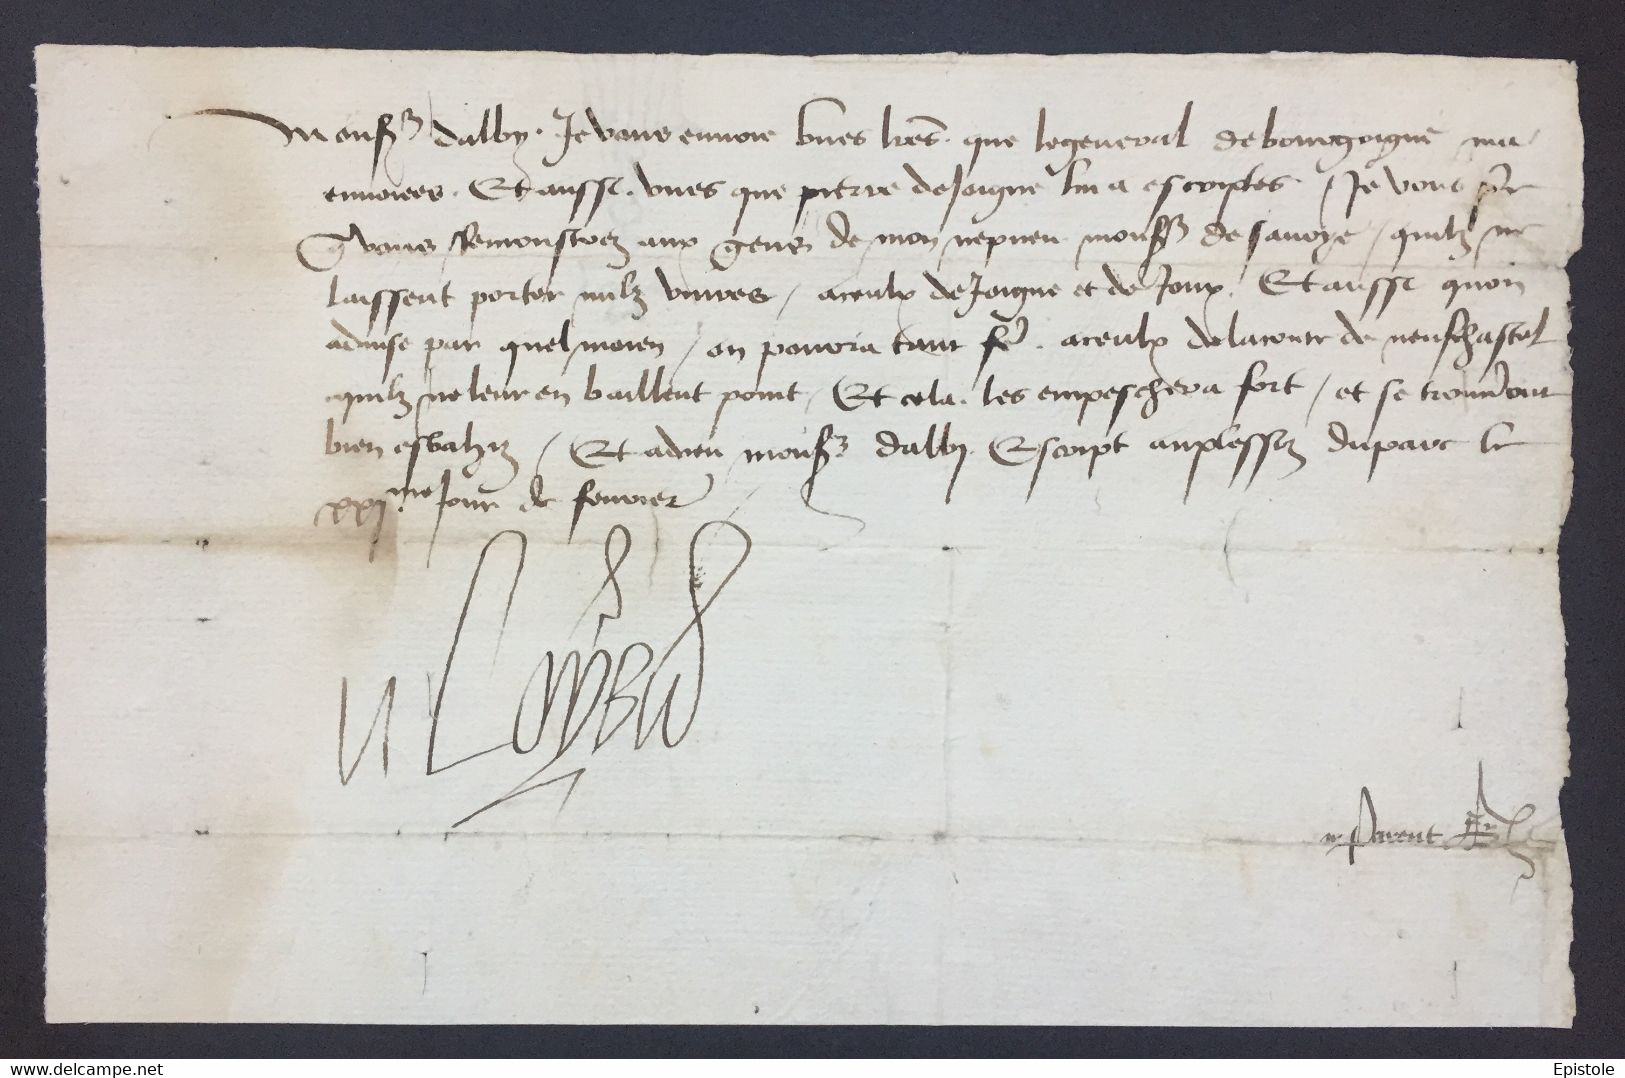 Monsr dalby. Je vous envoie unes lres. que le general de bourgoigne ma
envoiees. Et aussi. unes que pierre de Joigne lui a escriptes. / Je vous pr
q vous Remonstrez aux gens de mon nepveu monsr de savoye / quilz ne
laissent porter nulz vivres / a ceulx de Joigne et de Joux. Et aussi quon
advise par quel moien / on pourra tant fe. a ceulx de la conte de neufchastel
quilz ne leur en baillent point. Et cela. les empeschera fort / et se trouveront
bien esbahiz / Et adieu monsr dalby. Escript au plesseiz du parc le
xxi.me Jour de fevrier
Loys
Parent
www.delcampe.net
Epistole